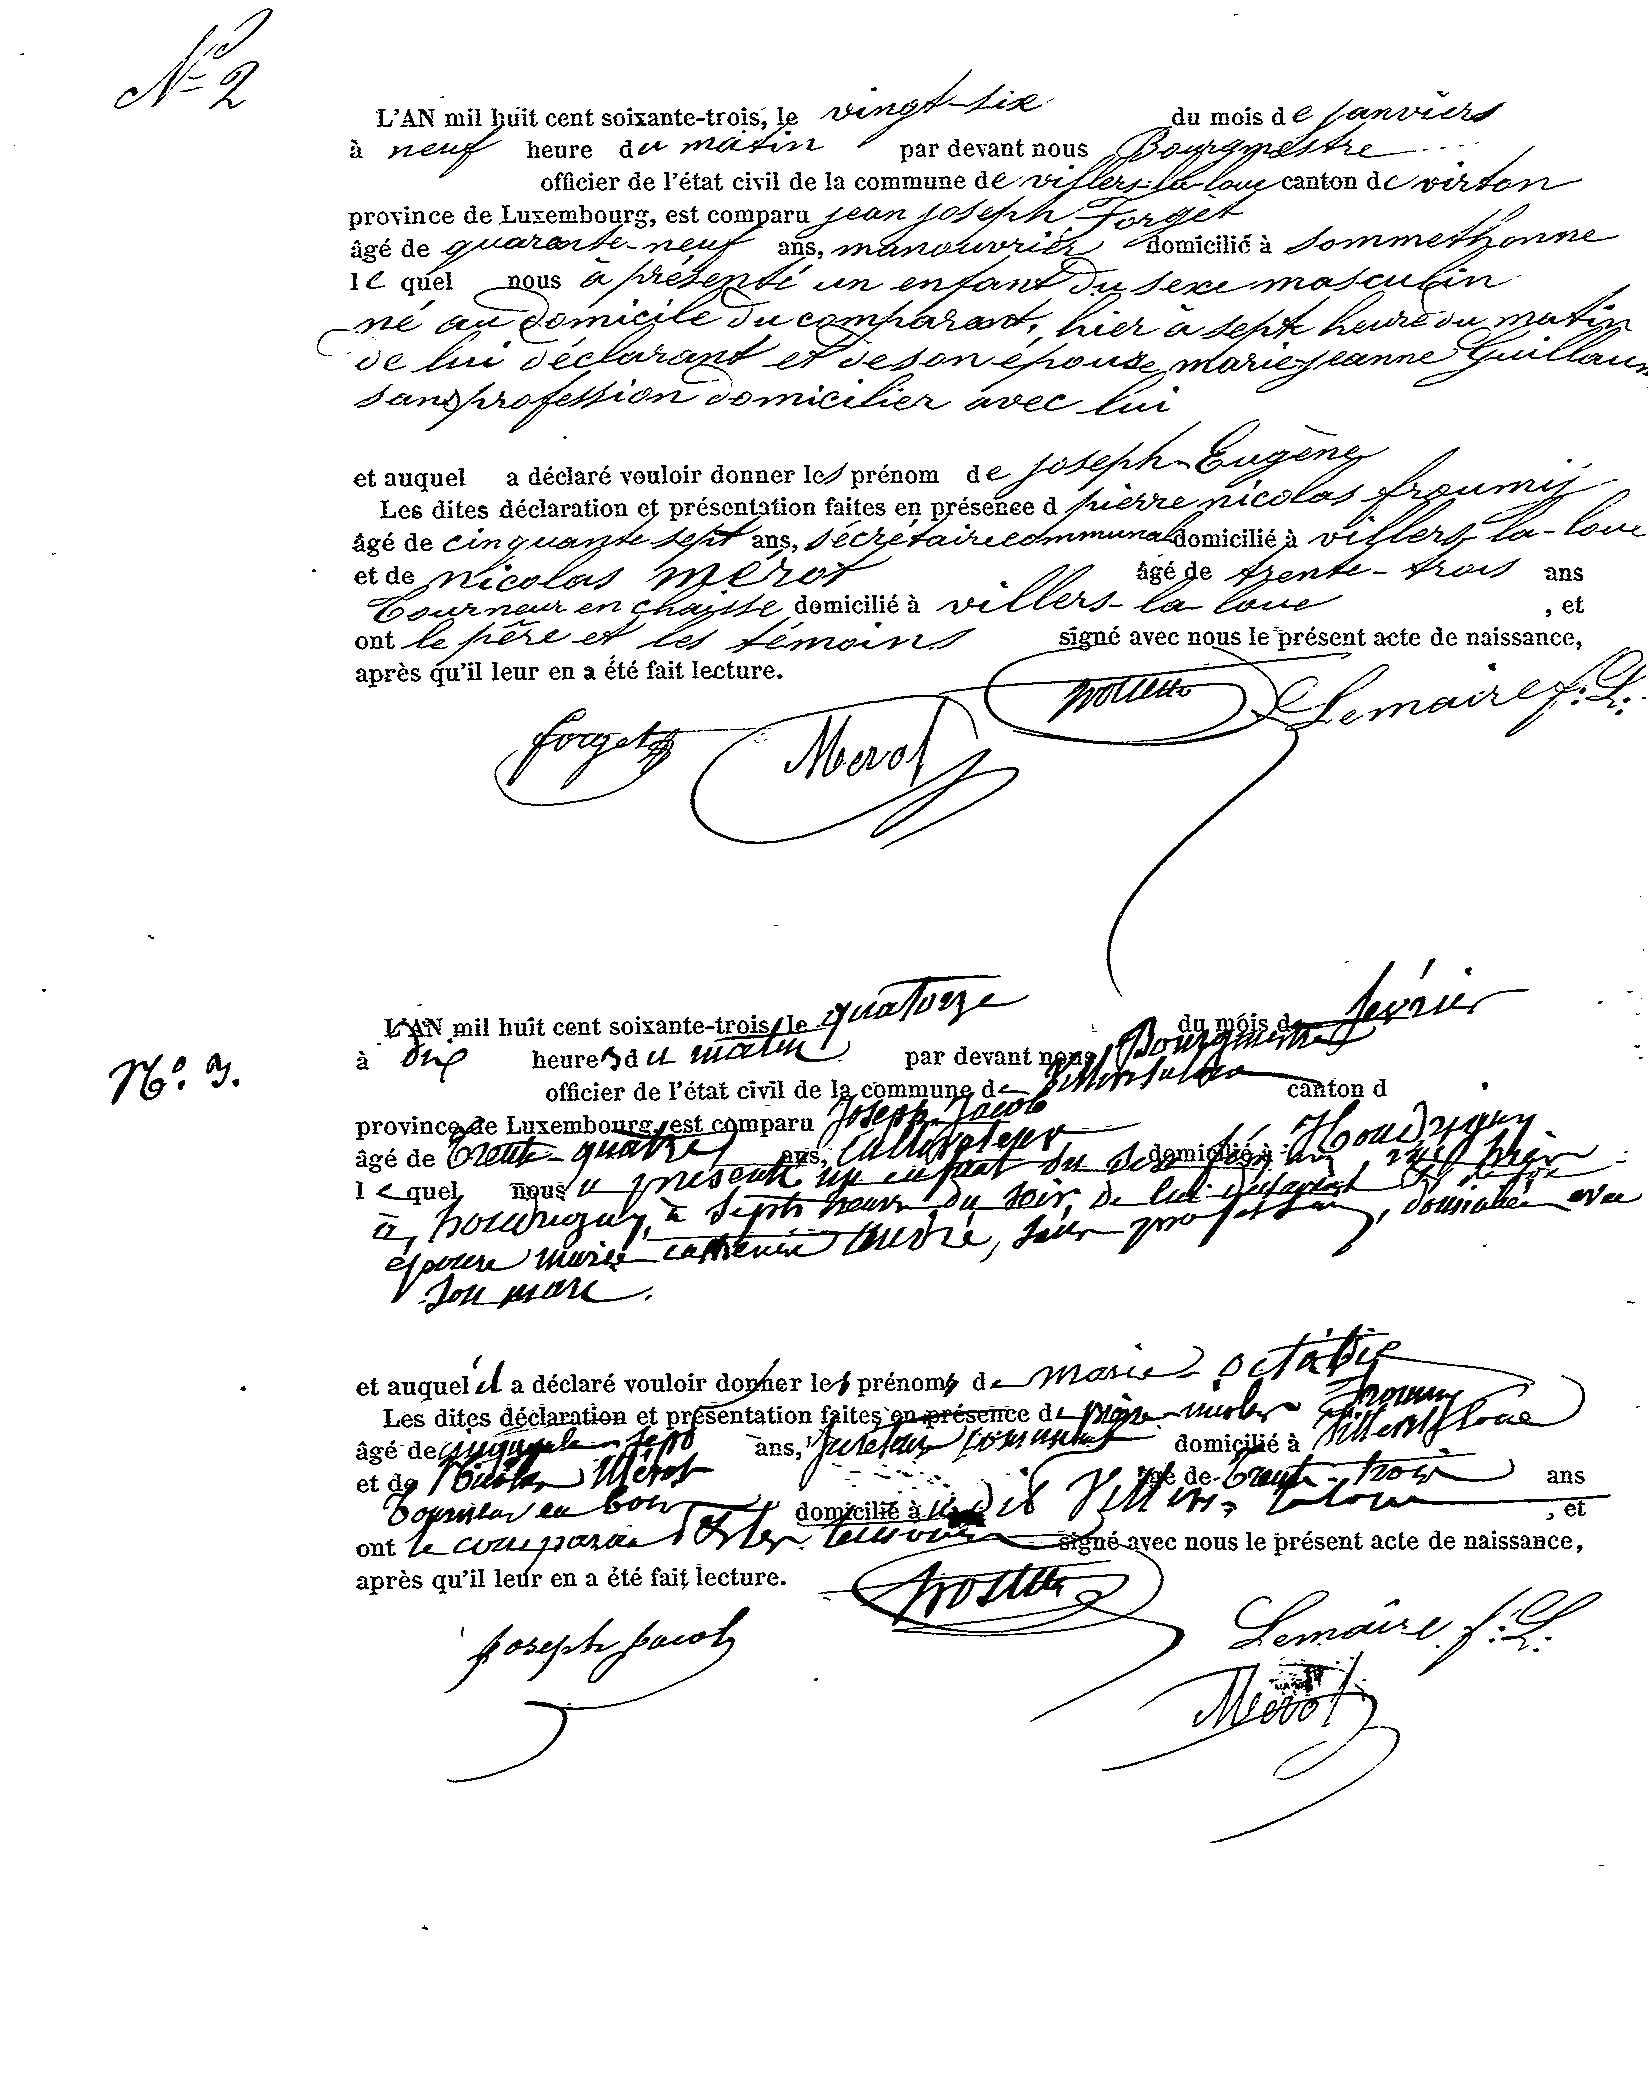 N° 2
L'AN mil huit cent soixante-trois, le vingt-six du mois de janviers
à neuf heure du matin par devant nous Bourgmestre
officier de l'état civil de la commune de villers-la-loue canton de virton
province de Luxembourg, est comparu jean joseph Forget
âgé de quarante-neuf ans, manouvrier domicilié à sommethonne
le quel nous à présenté un enfant du sexe masculin
né au domicile du comparant, hier à sept heure du matin
de lui déclarant et de son épouse marie-jeanne Guillaum
sans profession domicilier avec lui
et auquel a déclaré vouloir donner les prénom de joseph-Eugène
Les dites déclaration et présentation faites en présence d pierre nicolas froumij
âgé de cinquante sept ans, sécrétaire communal domicilié à villers-la-loue
et de nicolas mérot âgé de trente-trois ans
tourneur en chaisse domicilié à villers-la-loue , et
ont le père et les témoins signé avec nous le présent acte de naissance,
après qu'il leur en a été fait lecture.
Lemaire f.:L.:
forget Merot
L'AN mil huit cent soixante-trois, le quatorze du mois de février
N°. 3.
à dix heures du matin par devant nous Bourgmestre
officier de l'état civil de la commune de villerslaloue canton d
province de Luxembourg, est comparu Joseph Jacob
âgé de trente-quatre ans, cultivateur domicilié à Houdrigny
le quel nous a présenté un enfant du sexe féminin, né hier
à houdrigny, à sept heures du soir, de lui déclarant et de son
épouse marie catherine André, sans profession, domiciliée avec
son mari.
et auquel il a déclaré vouloir donner les prénoms de marie-octavie
Les dites déclaration et présentation faites en présence de pierre-nicolas Froumy
âgé de cinquante sept ans, secrétaire communal domicilié à villerslaloue
et de Nicolas Mérot âgé de trente-trois ans
tourneur en bois domicilié à dit villers-laloue , et
ont le comparant et les témoins signé avec nous le présent acte de naissance,
après qu'il leur en a été fait lecture.
joseph jacob Lemaire f.:L.:
Merot